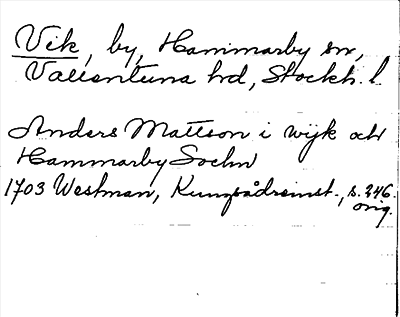 Vik, by, Hammarby sn,
Vallentuna hd, Stockh. l.
Anders Mattson i wijk och
Hammarby Sochn
1703 Westman, Kungsådreinst., s. 246.
orig.